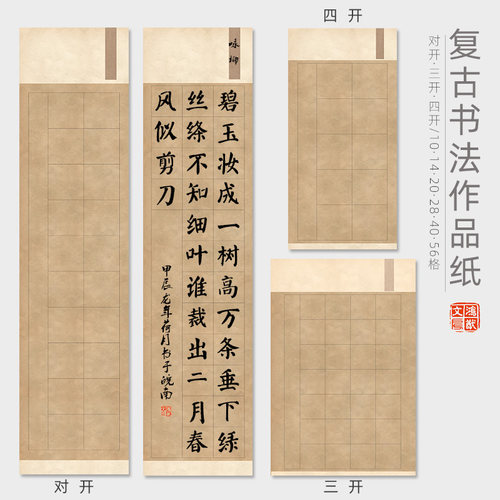 复古书法作品纸
对开·三开·四开/10·14·20·28·40·56格
四开
咏柳
碧玉妆成一树高万条垂下绿
丝绦不知细叶谁裁出二月春
风似剪刀
甲辰龙年荷月书于皖南
对开
三开